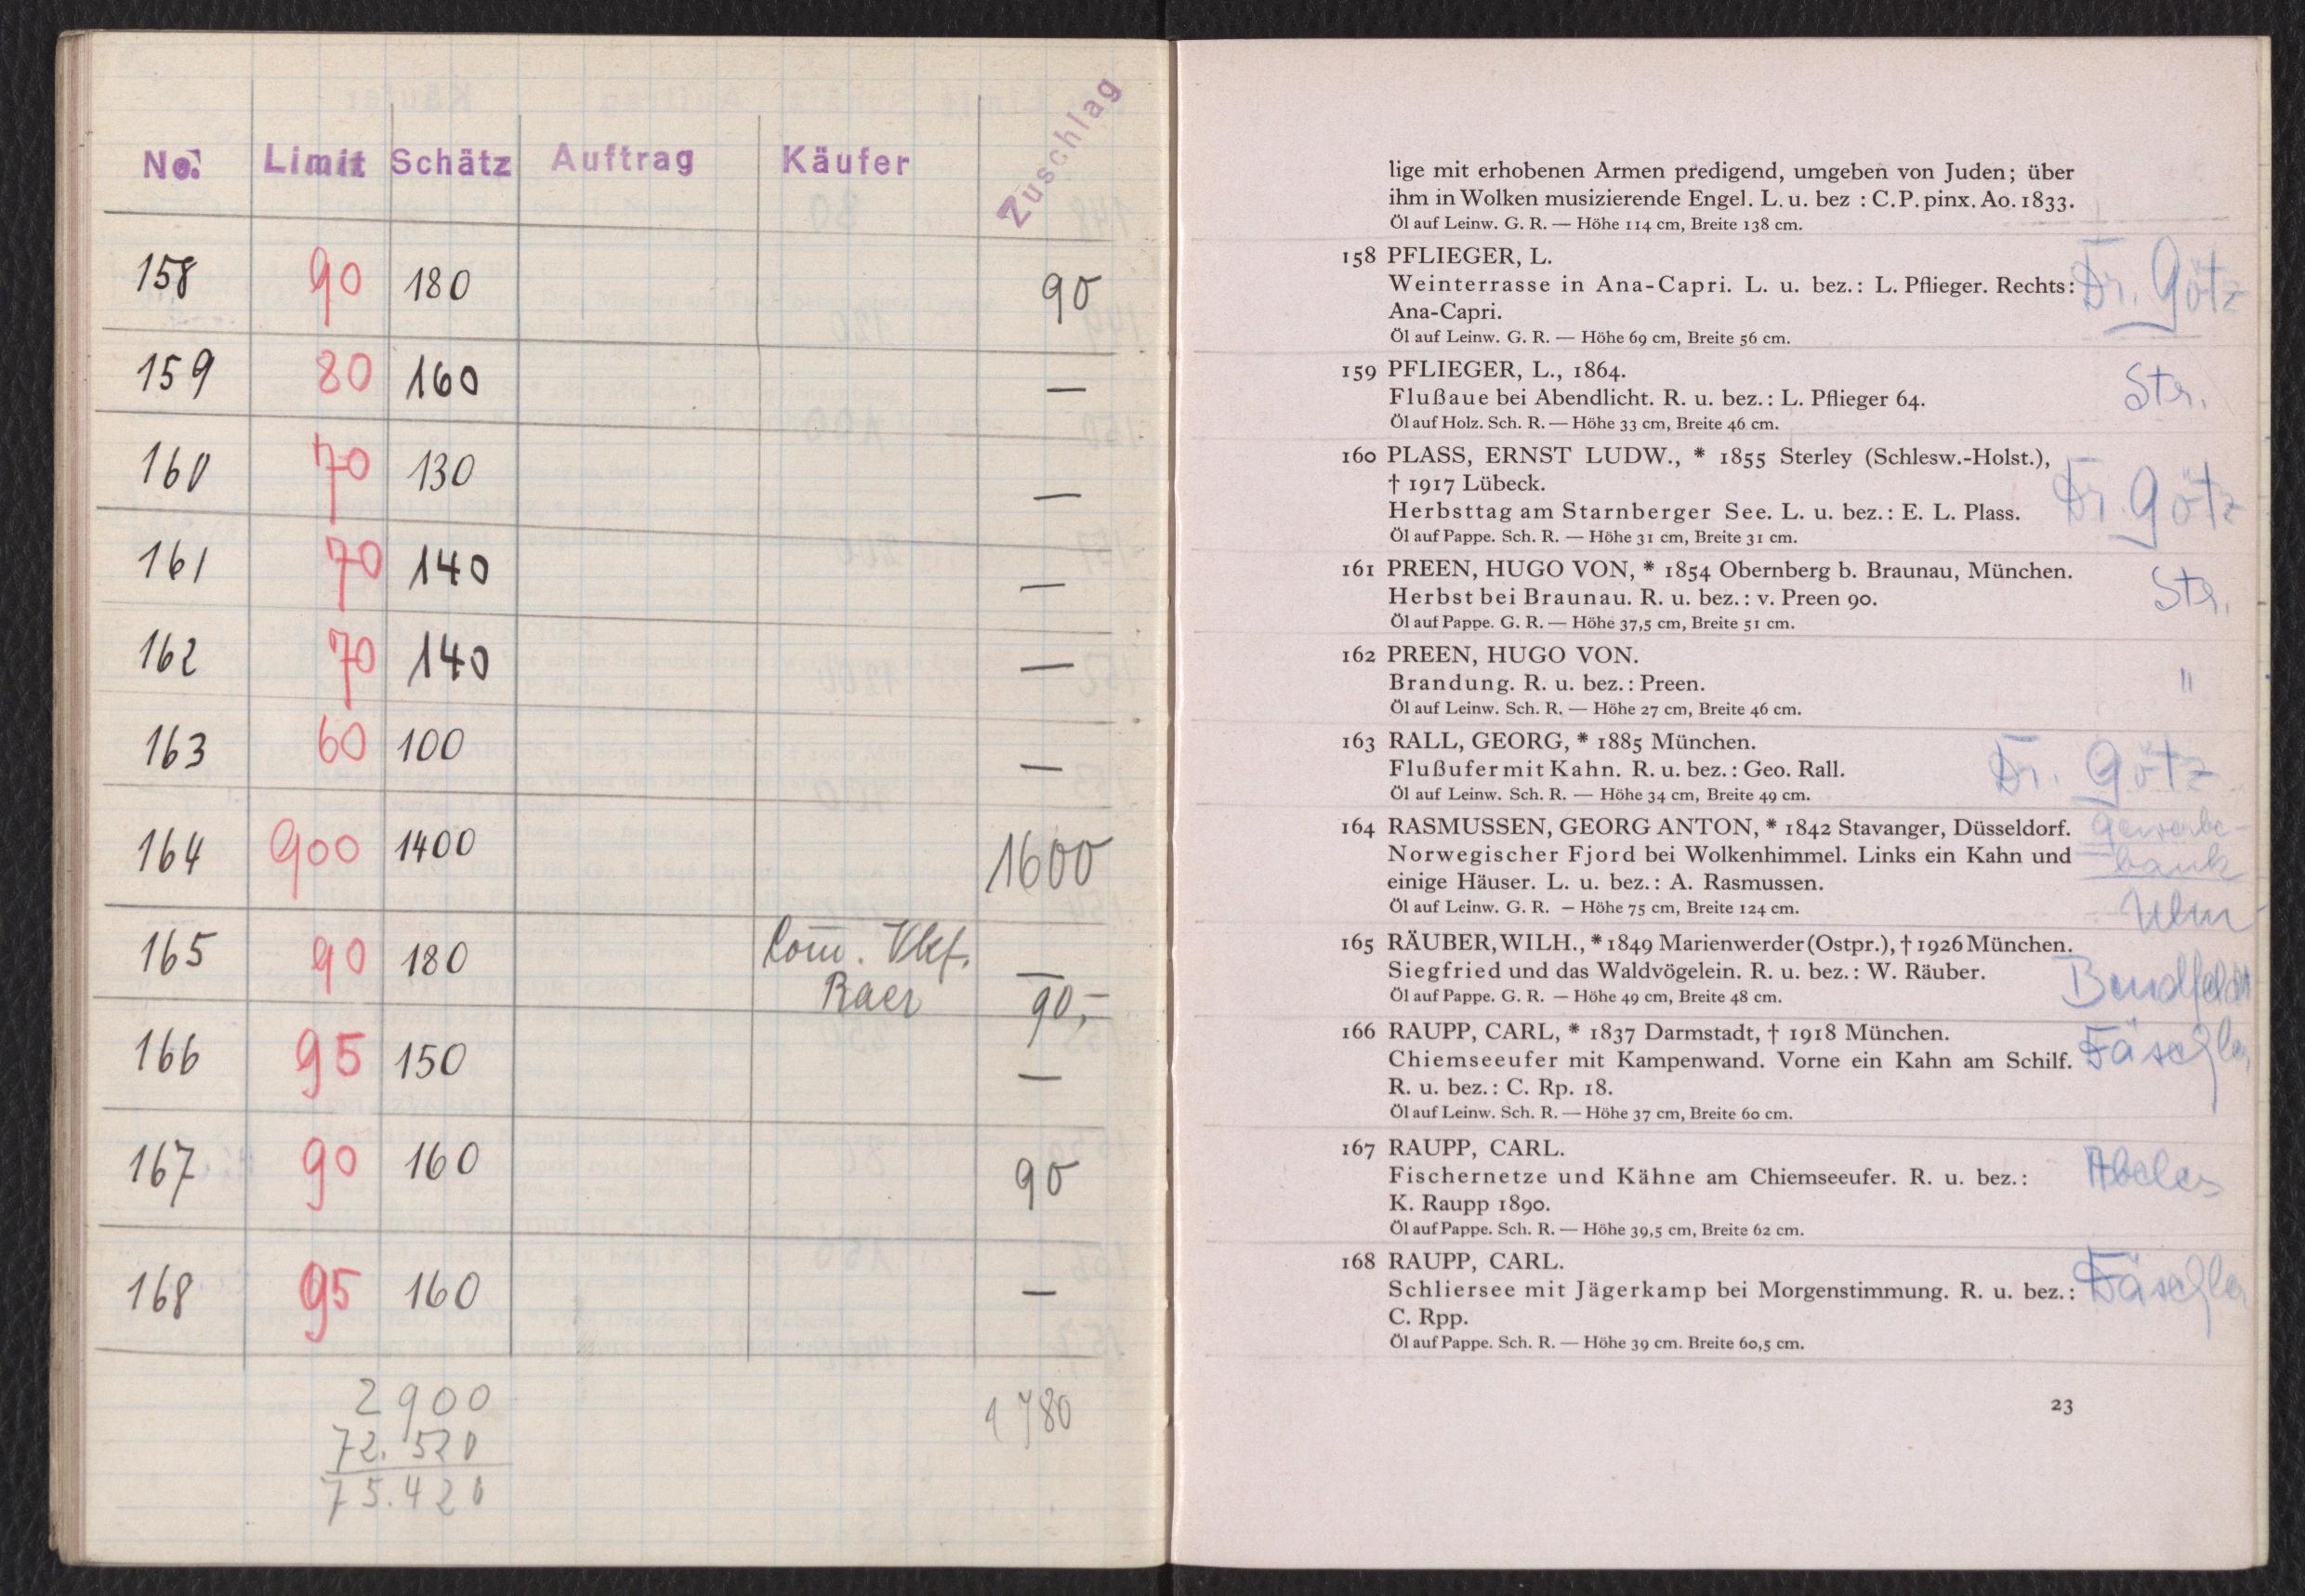 No. Limit Schätz Auftrag Käufer Zuschlag
158 90 180 90
159 80 160 —
160 70 130 —
161 70 140 —
162 70 140 —
163 60 100 —
164 900 1400 1600
165 90 180 Com. Vkf. —
Baer 90,-
166 95 150 —
167 90 160 90
168 95 160 —
2900
72.520
75.420
1780
lige mit erhobenen Armen predigend, umgeben von Juden; über
ihm in Wolken musizierende Engel. L. u. bez : C. P. pinx. Ao. 1833.
Öl auf Leinw. G. R. — Höhe 114 cm, Breite 138 cm.
158 PFLIEGER, L.
Weinterrasse in Ana-Capri. L. u. bez.: L. Pflieger. Rechts:
Ana-Capri.
Öl auf Leinw. G. R. — Höhe 69 cm, Breite 56 cm.
Dr. Götz
159 PFLIEGER, L., 1864.
Flußaue bei Abendlicht. R. u. bez.: L. Pflieger 64.
Öl auf Holz. Sch. R. — Höhe 33 cm, Breite 46 cm.
Str.
160 PLASS, ERNST LUDW., * 1855 Sterley (Schlesw.-Holst.),
† 1917 Lübeck.
Herbsttag am Starnberger See. L. u. bez.: E. L. Plass.
Öl auf Pappe. Sch. R. — Höhe 31 cm, Breite 31 cm.
Dr. Götz
161 PREEN, HUGO VON, * 1854 Obernberg b. Braunau, München.
Herbst bei Braunau. R. u. bez.: v. Preen 90.
Öl auf Pappe. G. R. — Höhe 37,5 cm, Breite 51 cm.
Str.
162 PREEN, HUGO VON.
Brandung. R. u. bez.: Preen.
Öl auf Leinw. Sch. R. — Höhe 27 cm, Breite 46 cm.
"
163 RALL, GEORG, * 1885 München.
Flußufer mit Kahn. R. u. bez.: Geo. Rall.
Öl auf Leinw. Sch. R. — Höhe 34 cm, Breite 49 cm.
Dr. Götz
164 RASMUSSEN, GEORG ANTON, * 1842 Stavanger, Düsseldorf.
Norwegischer Fjord bei Wolkenhimmel. Links ein Kahn und
einige Häuser. L. u. bez.: A. Rasmussen.
Öl auf Leinw. G. R. – Höhe 75 cm, Breite 124 cm.
Gewerbe-
bank
Ulm
165 RÄUBER, WILH., * 1849 Marienwerder (Ostpr.), † 1926 München.
Siegfried und das Waldvögelein. R. u. bez.: W. Räuber.
Öl auf Pappe. G. R. — Höhe 49 cm, Breite 48 cm.
Bendfeldt
166 RAUPP, CARL, * 1837 Darmstadt, † 1918 München.
Chiemseeufer mit Kampenwand. Vorne ein Kahn am Schilf.
R. u. bez.: C. Rp. 18.
Öl auf Leinw. Sch. R. — Höhe 37 cm, Breite 60 cm.
167 RAUPP, CARL.
Fischernetze und Kähne am Chiemseeufer. R. u. bez.:
K. Raupp 1890.
Öl auf Pappe. Sch. R. — Höhe 39,5 cm, Breite 62 cm.
Abeles
168 RAUPP, CARL.
Schliersee mit Jägerkamp bei Morgenstimmung. R. u. bez.:
C. Rpp.
Öl auf Pappe. Sch. R. — Höhe 39 cm. Breite 60,5 cm.
23